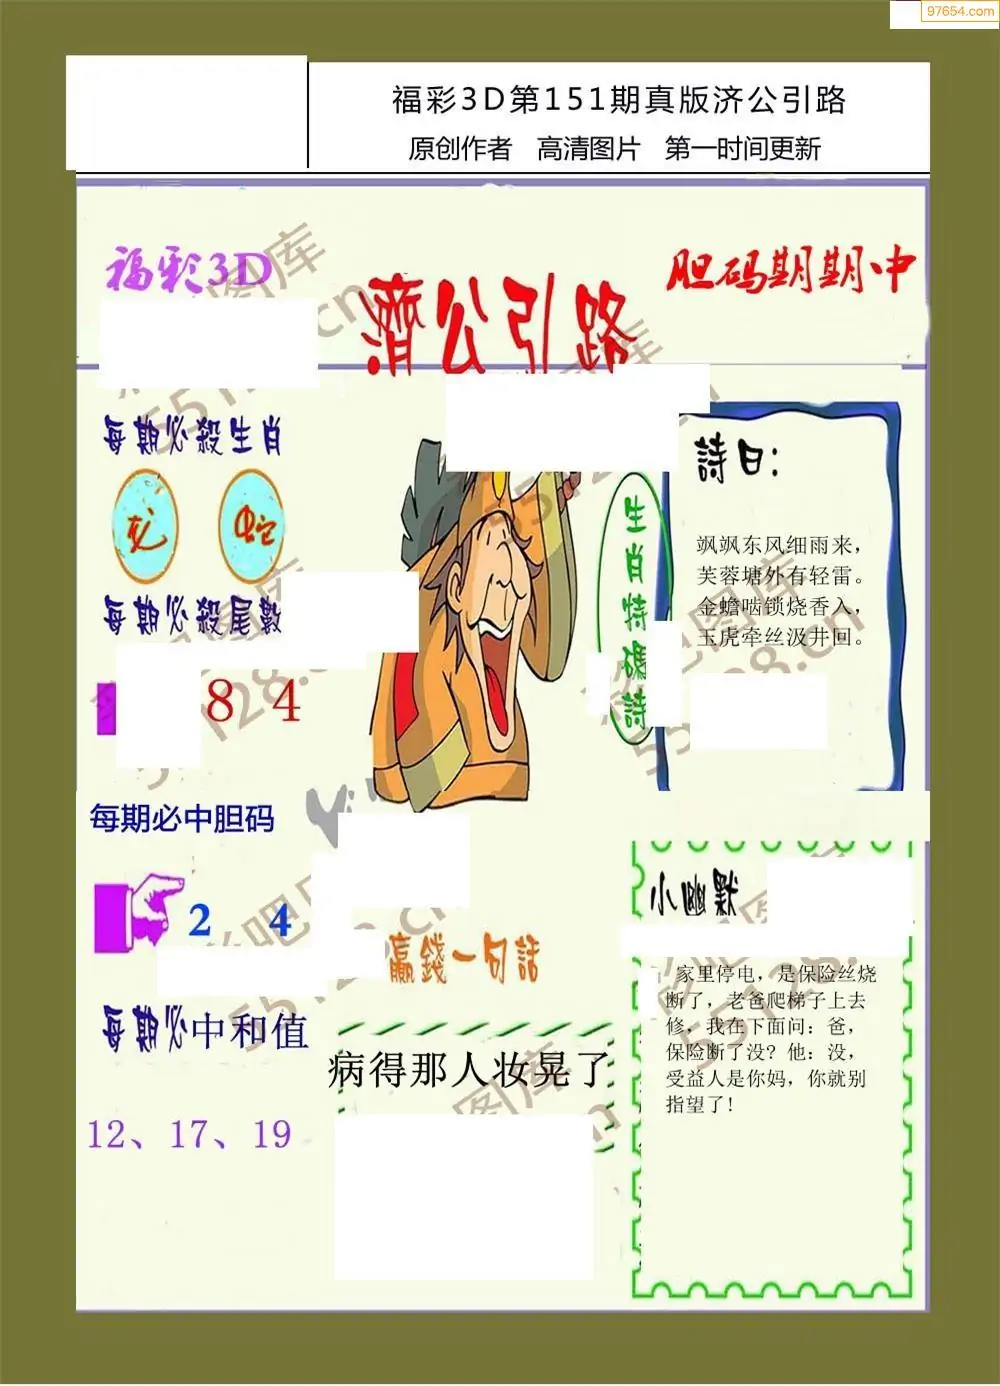 97654.com
福彩3D第151期真版济公引路
原创作者 高清图片 第一时间更新
福彩3D
濟公引路
胆码期期中
每期必殺生肖
龙 蛇
每期必殺尾數
8 4
每期必中胆码
2 4
每期必中和值
12、17、19
生肖特碼詩
詩曰:
飒飒东风细雨来，
芙蓉塘外有轻雷。
金蟾啮锁烧香入，
玉虎牵丝汲井回。
贏錢一句話
病得那人妆晃了
小幽默
家里停电，是保险丝烧
断了，老爸爬梯子上去
修，我在下面问：爸，
保险断了没? 他：没，
受益人是你妈，你就别
指望了!